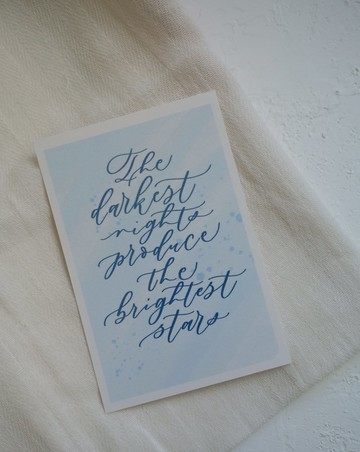 The
darkest
nights
produce
the
brightest
stars